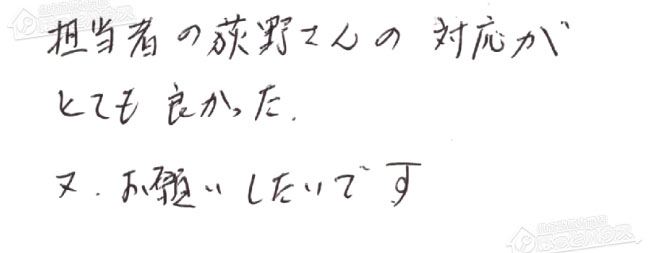 担当者の荻野さんの対応が
とても良かった.
又.お願いしたいです